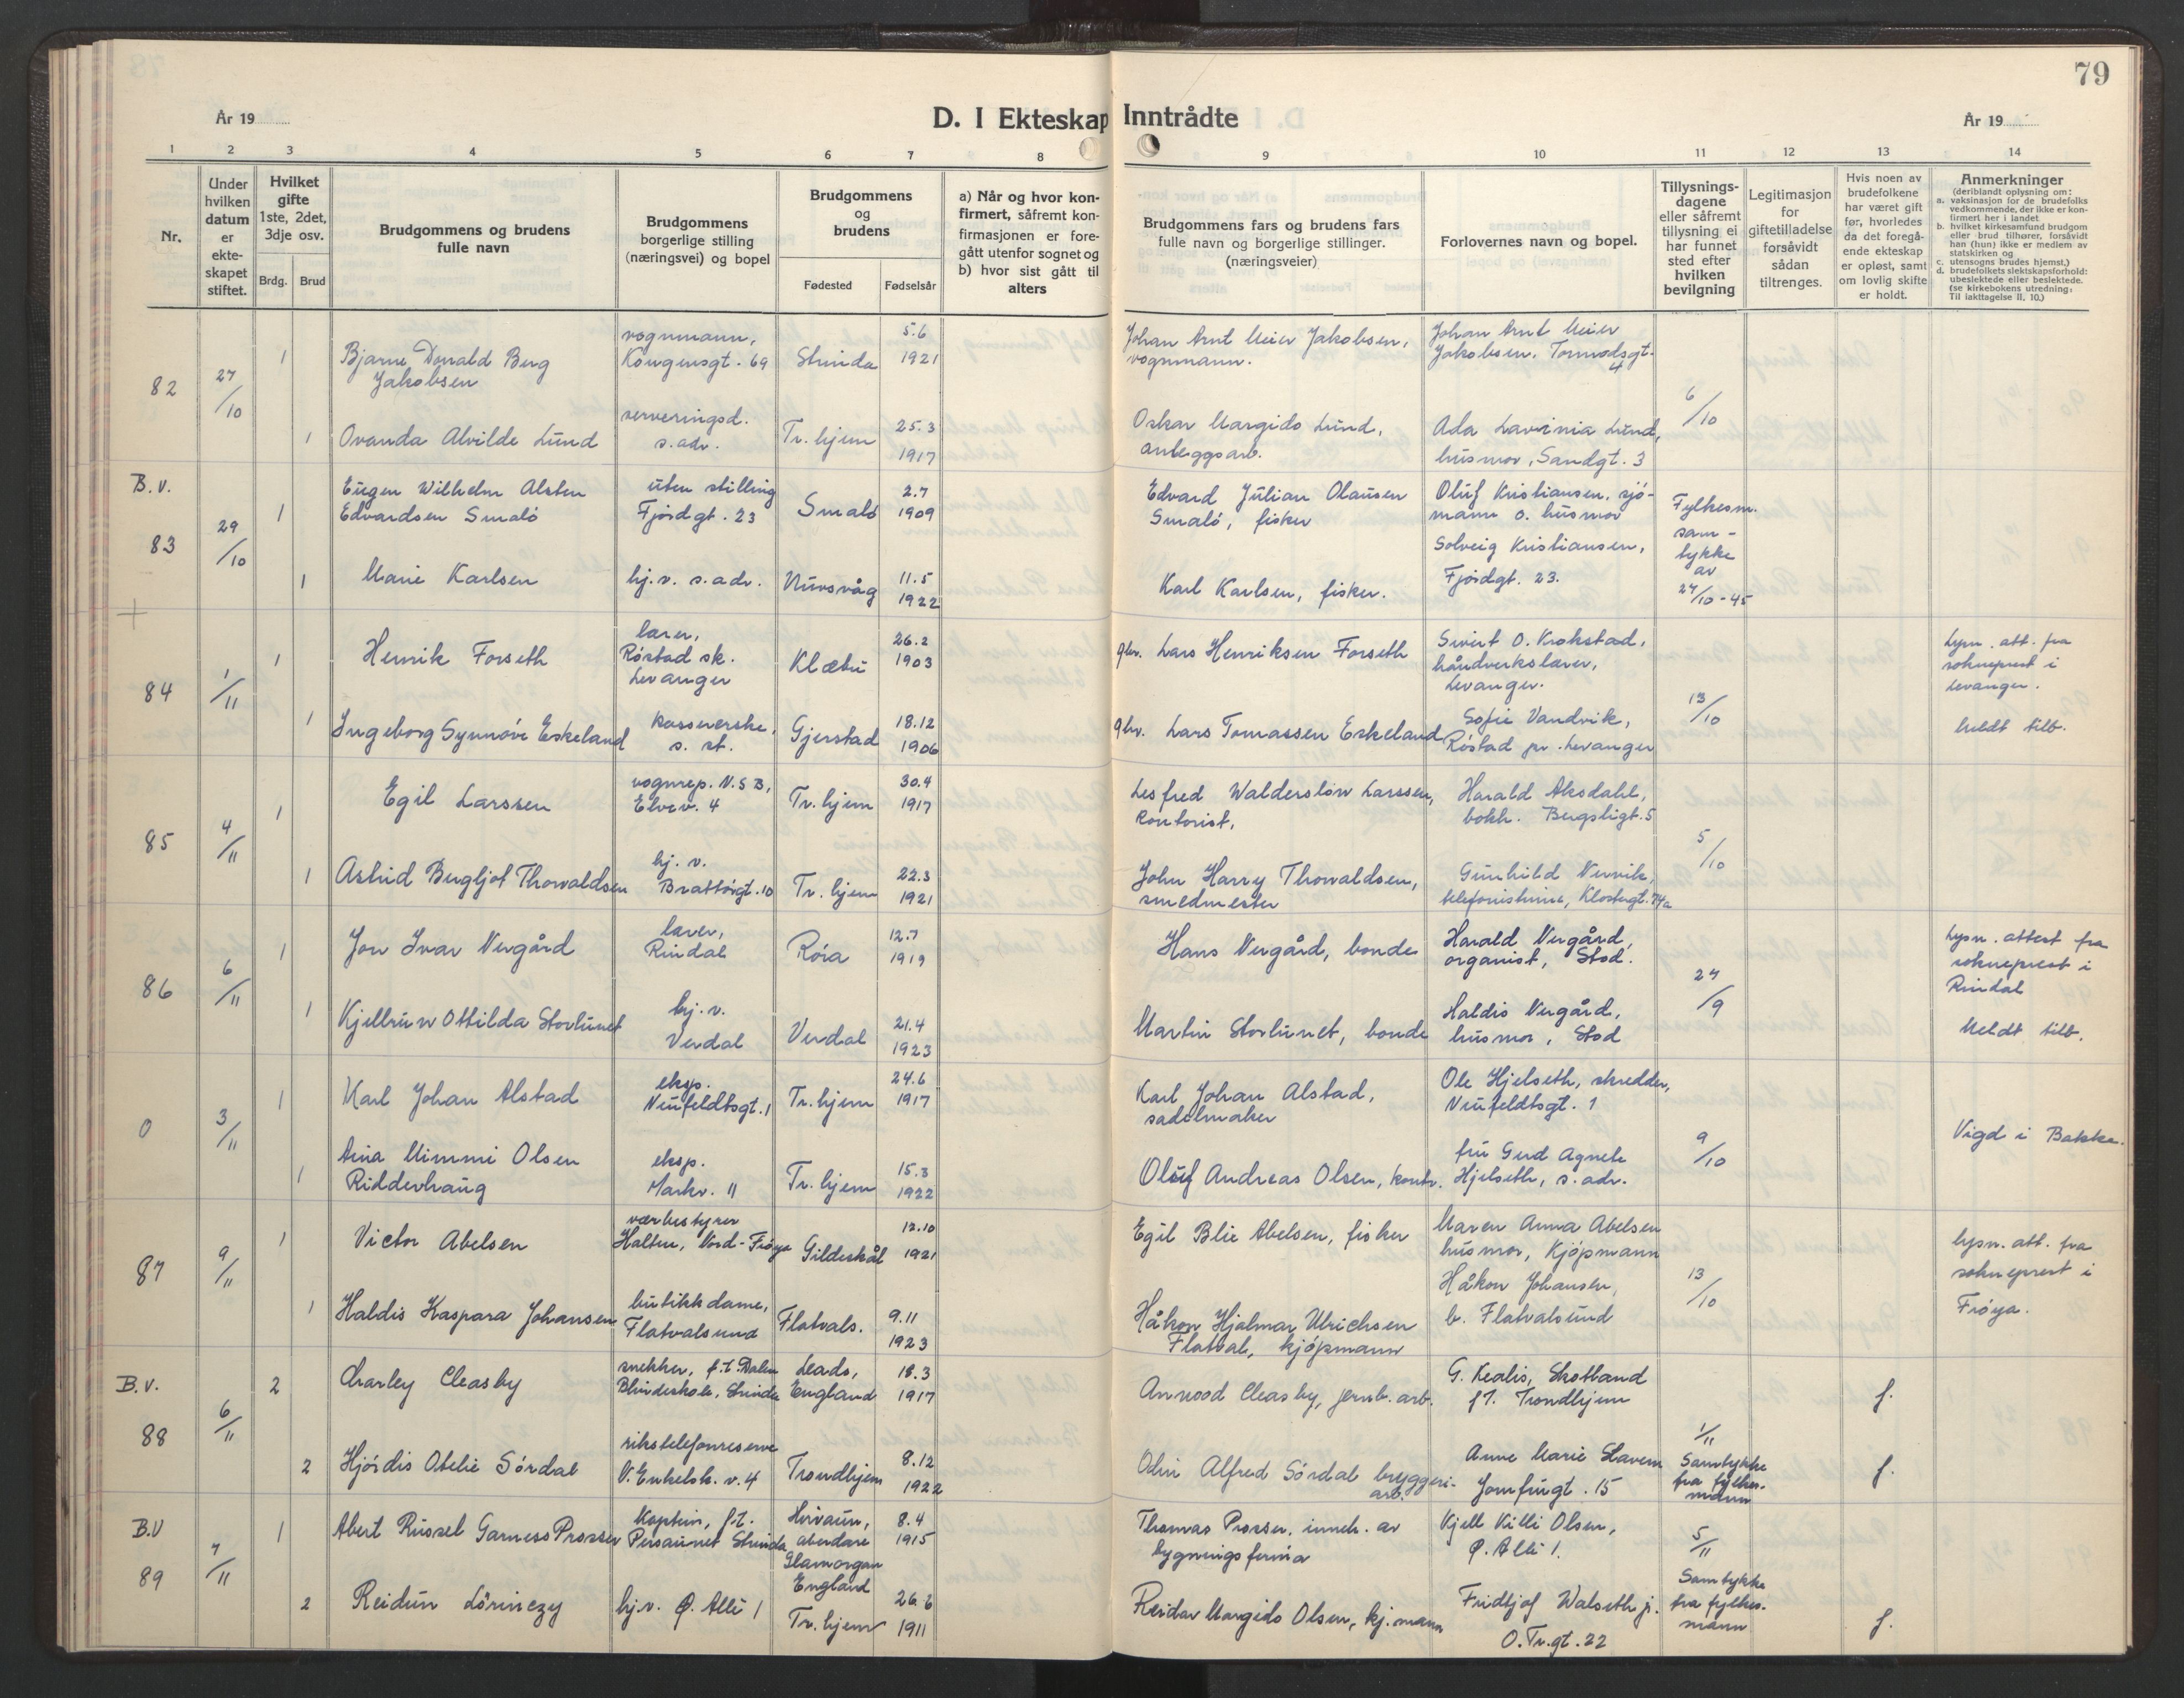 79
År 19
D. I Ekteskap Inntrådte
År 19
1 2 3 4 5 6 7 8 9 10 11 12 13 14
Nr.
Under hvilken datum er ekte- skapet stiftet.
Hvilket gifte 1ste, 2det, 3dje osv.
Brdg. Brud
Brudgommens og brudens fulle navn
Brudgommens borgerlige stilling (næringsvei) og bopel
Brudgommens og brudens
Fødested Fødselsår
a) Når og hvor kon- firmert, såfremt kon- firmasjonen er fore- gått utenfor sognet og b) hvor sist gått til alters
Brudgommens fars og brudens fars fulle navn og borgerlige stillinger. (næringsveier)
Forlovernes navn og bopel.
Tillysnings- dagene eller såfremt tillysning ei har funnet sted efter hvilken bevilgning
Legitimasjon for giftetilladelse forsåvidt sådan tiltrenges.
Hvis noen av brudefolkene har været gift før, hvorledes da det foregå- ende ekteskap er opløst, samt om lovlig skifte er holdt.
Anmerkninger
(deriblandt oplysning om:
a. vaksinasjon for de brudefolks vedkommende, der ikke er kon- firmert her i landet
b. hvilket kirkesamfund brudgom eller brud tilhører, forsåvidt han (hun) ikke er medlem av statskirken og
c. utensogns brudes hjemst.)
d. brudefolkets slektskapsforhold: ubeslektede eller beslektede.
(se kirkebokens utredning: Til iakttagelse II, 10.)
82 27/10 1 Bjarne Donald Berg Jakobsen
vognmann, Kongensgt. 69 Strinda 5.6 1921
Johan Arnt Meier Jakobsen, vognmann.
Johan Arnt Meier Jakobsen. Tormodsgt. 4
6/10
1 Ovanda Alvilde Lund
serveringsd. s. adr. Tr.hjem 25.3 1917
Oskar Margido Lund, anleggsarb.
Ada Lavinia Lund, husmor, Sandgt. 3
B.V.
83 29/10 1 Eugen Wilhelm Alsten Edvardsen Smalø
uten stilling Fjordgt. 23 Smalø 2.7 1909
Edvard Julian Olausen Smalø, fisker
Oluf Kristiansen, sjø- mann o. husmor Solveig Kristiansen, Fjordgt. 23.
Fylkesm. sam- tykke av 27/10-45
1 Marie Karlsen hj.v. s. adr. Nuvsvåg 11.5 1922
Karl Karlsen, fisker.
84 1/11 1 Henrik Forseth
lærer, Røstad sk. Levanger Klæbu 26.2 1903
gbr. Lars Henriksen Forseth
Sivert O. Krokstad, håndverkslærer, Levanger.
13/10
Lysn. att. fra sokneprest i Levanger.
Meldt tilb.
1 Ingeborg Synnøve Eskeland
kassererske, s. st. Gjerstad 18.12 1906
gbr. Lars Tomassen Eskeland
Sofie Vandvik, Røstad pr. Levanger
85 4/11 1 Egil Larssen
vognrep. N.S.B, Elvev. 4 Tr.hjem 30.4 1917
Lesfred Walderslöw Larssen, kontorist,
Harald Aksdahl, bokh. Bergsligt. 5
5/10
1 Astrid Bergljot Thorvaldsen
hj. v. Brattørgt. 10 Tr.hjem 22.3 1921
John Harry Thorvaldsen, smedmester
Gunhild Vervik, telefonistinne, Klostergt. 74a
86 6/11 1 Jon Ivar Vergård
lærer, Rindal Røra 12.7 1919
Hans Vergård, bonde
Harald Vergård, organist, Stod.
27/9
Lysn. attest fra sokneprest i Rindal
Meldt tilb.
1 Kjellrun Ottilda Storlunet
hj. v. Verdal Verdal 21.4 1923
Martin Storlunet, bonde
Haldis Vergård, husmor, Stod
0 3/11 1 Karl Johan Alstad
eksp. Neufeldtsgt. 1 Tr.hjem 24.6 1917
Karl Johan Alstad, sadelmaker
Ole Hjelseth, skredder, Neufeldtsgt. 1
9/10
Vigd i Bakke.
1 Aina Mimmi Olsen Ridderhaug
eksp. Markv. 11 Tr.hjem 15.3 1922
Oluf Andreas Olsen, kontr.
fru Gerd Agnete Hjelseth, s. adr.
87 9/11 1 Victor Abelsen
værbestyrer Halten, Nord-Frøya Gildeskål 12.10 1921
Egil Blie Abelsen, fisker
Maren Anna Abelsen husmor, Kjøpmann Håkon Johansen, b. Flatvalsund
13/10
lysn. att. fra sokneprest i Frøya.
1 Haldis Kaspara Johansen
butikkdame, Flatvalsund Flatvals. 9.11 1923
Håkon Hjalmar Ulrichsen Flatval, kjøpmann
B.V.
88 6/11 2 Charley Cleasby
snekker, f.t. Dalen Blindeskole, Strinda Leads, England 18.3 1917
Annood Cleasby, jernb. arb.
G. Kealis, Skotland f.t. Trondhjem
f.
2 Hjørdis Otelie Sørdal
rikstelefonreserve V. Enkelsk. v. 4 Trondhjem 8.12 1922
Odin Alfred Sørdal bryggeri- arb.
Anne Marie Slavem Jomfrugt. 15
1/11 Samtykke fra fylkes- mann
f.
B.V
89 7/11 1 Abert Russel Garness Prosser
Kaptein, f.t. Persaunet Strinda Hirvaun, aberdare Glamorgan England 8.4 1915
Thomas Prosser, inneh. av bygningsferma
Kjell Killi Olsen, Ø. Allé 1.
5/11 Samtykke fra fylkes- mann
2 Reidun Lörinczy
hj.v. Ø. Allé 1 Tr.hjem 26.6 1911
Reidar Margido Olsen, kj.mann
Fridtjof Walseth jr. O.Tr.gt. 22
f.